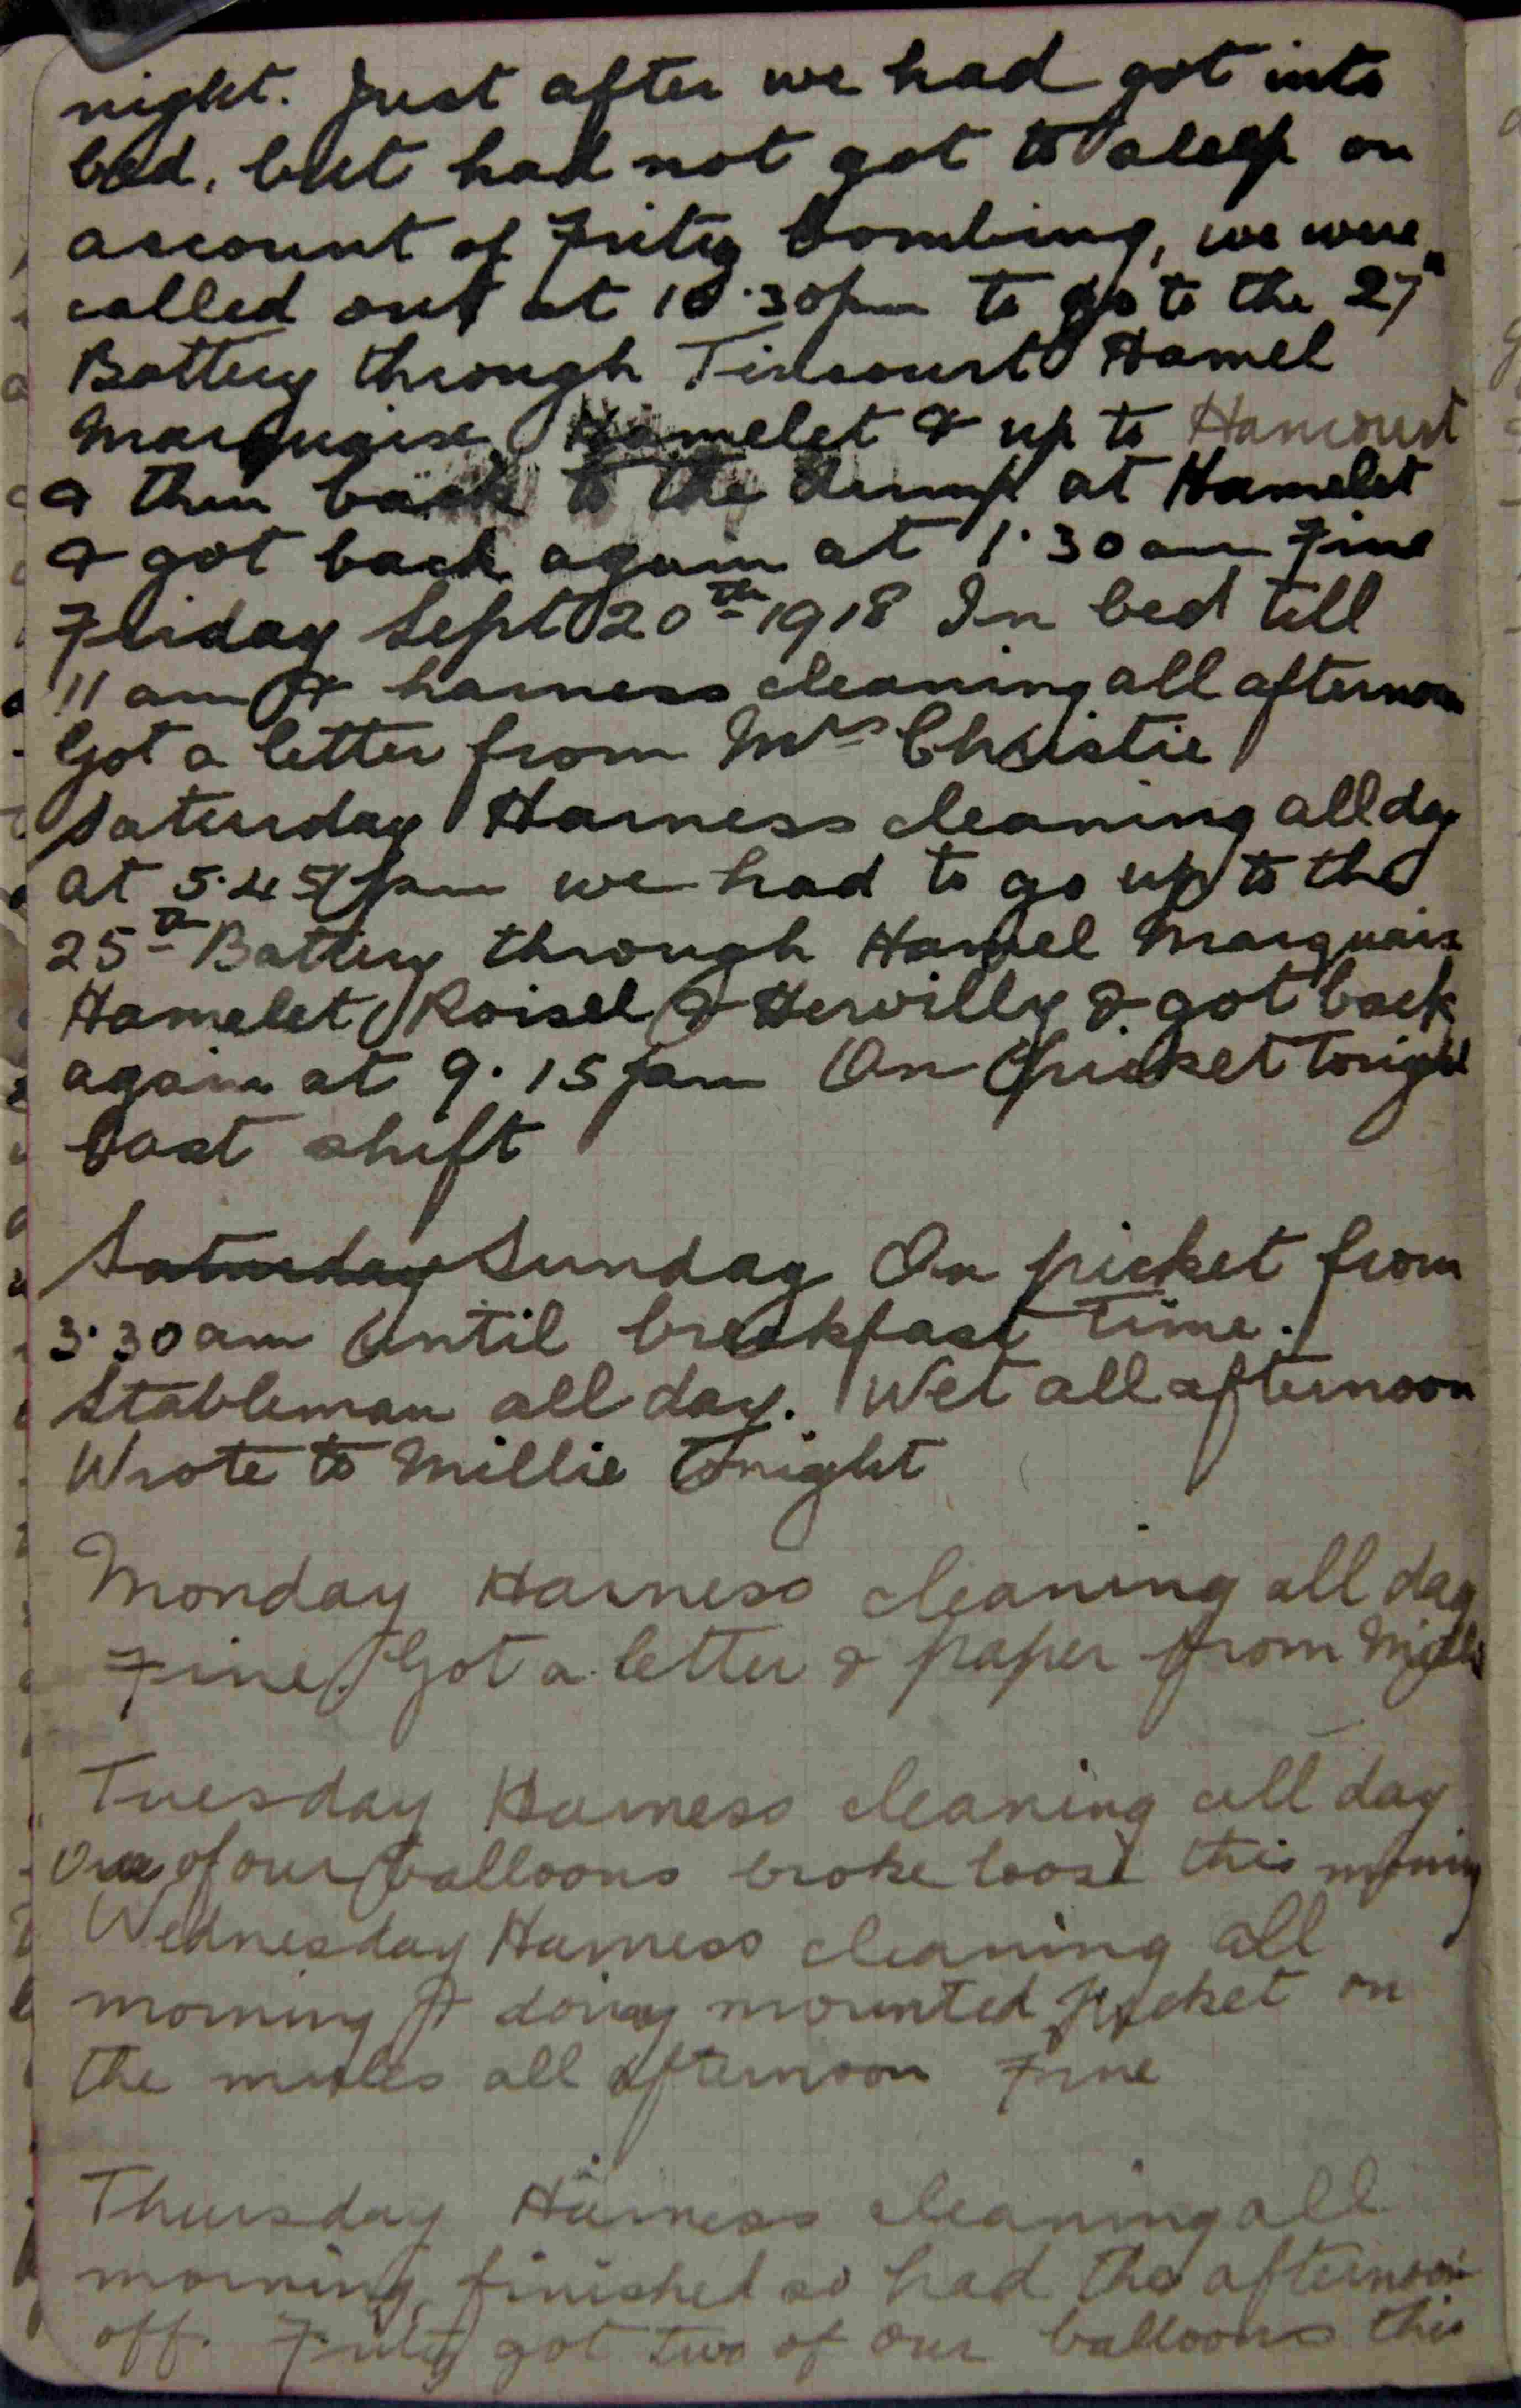 night. Just after we had got into
bed, but had not got to sleep on
account of Fritz bombing, we were
called out at 10.30pm to go to the 27th
Battery through Tincourt Hamel
Marquaise Hamelet & up to Hancourt
& then back to the dump at Hamelet
& got back again at 1.30am Fine
Friday Sept 20th 1918 In bed till
11 am & harness cleaning all afternoon
Got a letter from Mrs Christie
Saturday Harness cleaning all day
at 5.45pm we had to go up to the
25th Battery through Hamel Marquaix
Hamelet Roisel & Hervilly & got back
again at 9.15pm On picket tonight
last shift
Saturday Sunday On picket from
3.30am until breakfast time.
Stableman all day. Wet all afternoon
Wrote to Millie tonight
Monday Harness cleaning all day
Fine. Got a letter & paper from Millie
Tuesday Harness cleaning all day
One of our balloons broke loose this morning
Wednesday Harness cleaning all
morning & doing mounted picket on
the mules all afternoon Fine
Thursday Harness cleaning all
morning, finished so had the afternoon
off. Fritz got two of our balloons this